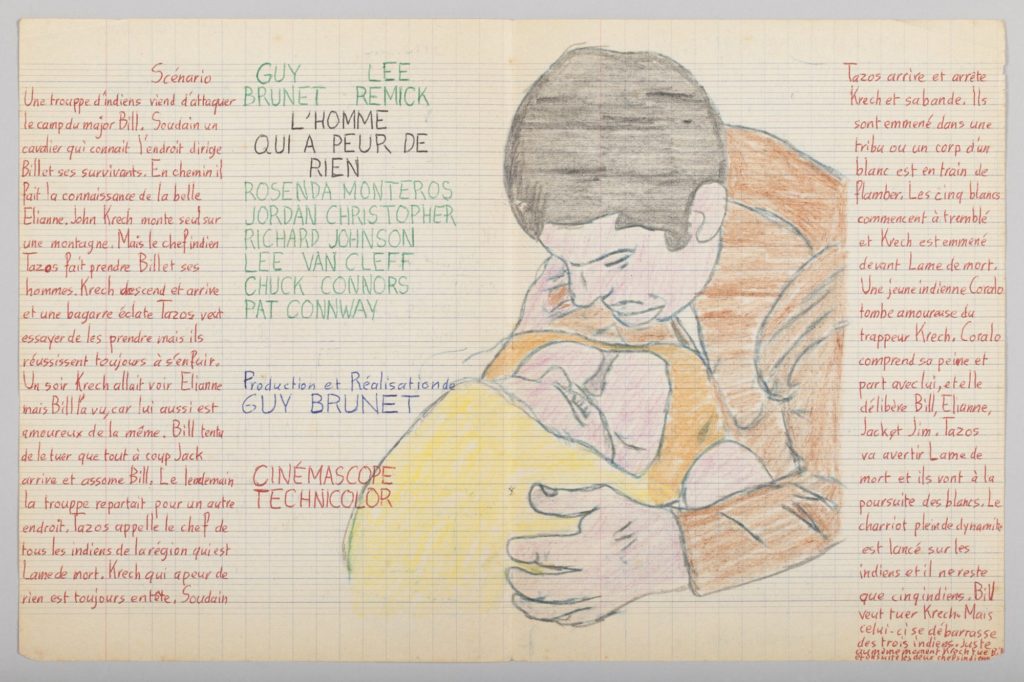 Scénario
Une trouppe d'indiens viend d'attaquer
le camp du major Bill. Soudain un
cavalier qui connait l'endroit dirige
Bill et ses survivants. En chemin il
fait la connaissance de la belle
Elianne. John Krech monte seul sur
une montagne. Mais le chef indien
Tazos fait prendre Bill et ses
hommes. Krech descend et arrive
et une bagarre éclate Tazos veut
essayer de les prendre mais ils
réussissent toujours à s'enfuir.
Un soir Krech allait voir Elianne
mais Bill l'a vu, car lui aussi est
amoureux de la même. Bill tenta
de le tuer que tout à coup Jack
arrive et assome Bill. Le lendemain
la trouppe repartait pour un autre
endroit. Tazos appelle le chef de
tous les indiens de la région qui est
Lame de mort. Krech qui a peur de
rien est toujours en tête. Soudain
GUY LEE
BRUNET REMICK
L'HOMME
QUI A PEUR DE
RIEN
ROSENDA MONTEROS
JORDAN CHRISTOPHER
RICHARD JOHNSON
LEE VAN CLEFF
CHUCK CONNORS
PAT CONNWAY
Production et Réalisation de
GUY BRUNET
CINÉMASCOPE
TECHNICOLOR
Tazos arrive et arrête
Krech et sa bande. Ils
sont emmené dans une
tribu ou un corp d'un
blanc est en train de
flamber. Les cinq blancs
commencent à tremblé
et Krech est emmené
devant Lame de mort.
Une jeune indienne Coralo
tombe amoureuse du
trappeur Krech. Coralo
comprend sa peine et
part avec lui, et elle
délibère Bill, Elianne,
Jack et Jim. Tazos
va avertir Lame de
mort et ils vont à la
poursuite des blancs. Le
charriot plein de dynamite
est lancé sur les
indiens et il ne reste
que cinq indiens. Bill
veut tuer Krech. Mais
celui-ci se débarrasse
des trois indiens. Juste
au même moment Krech tue Bill
et ensuite les deux chefs indiens